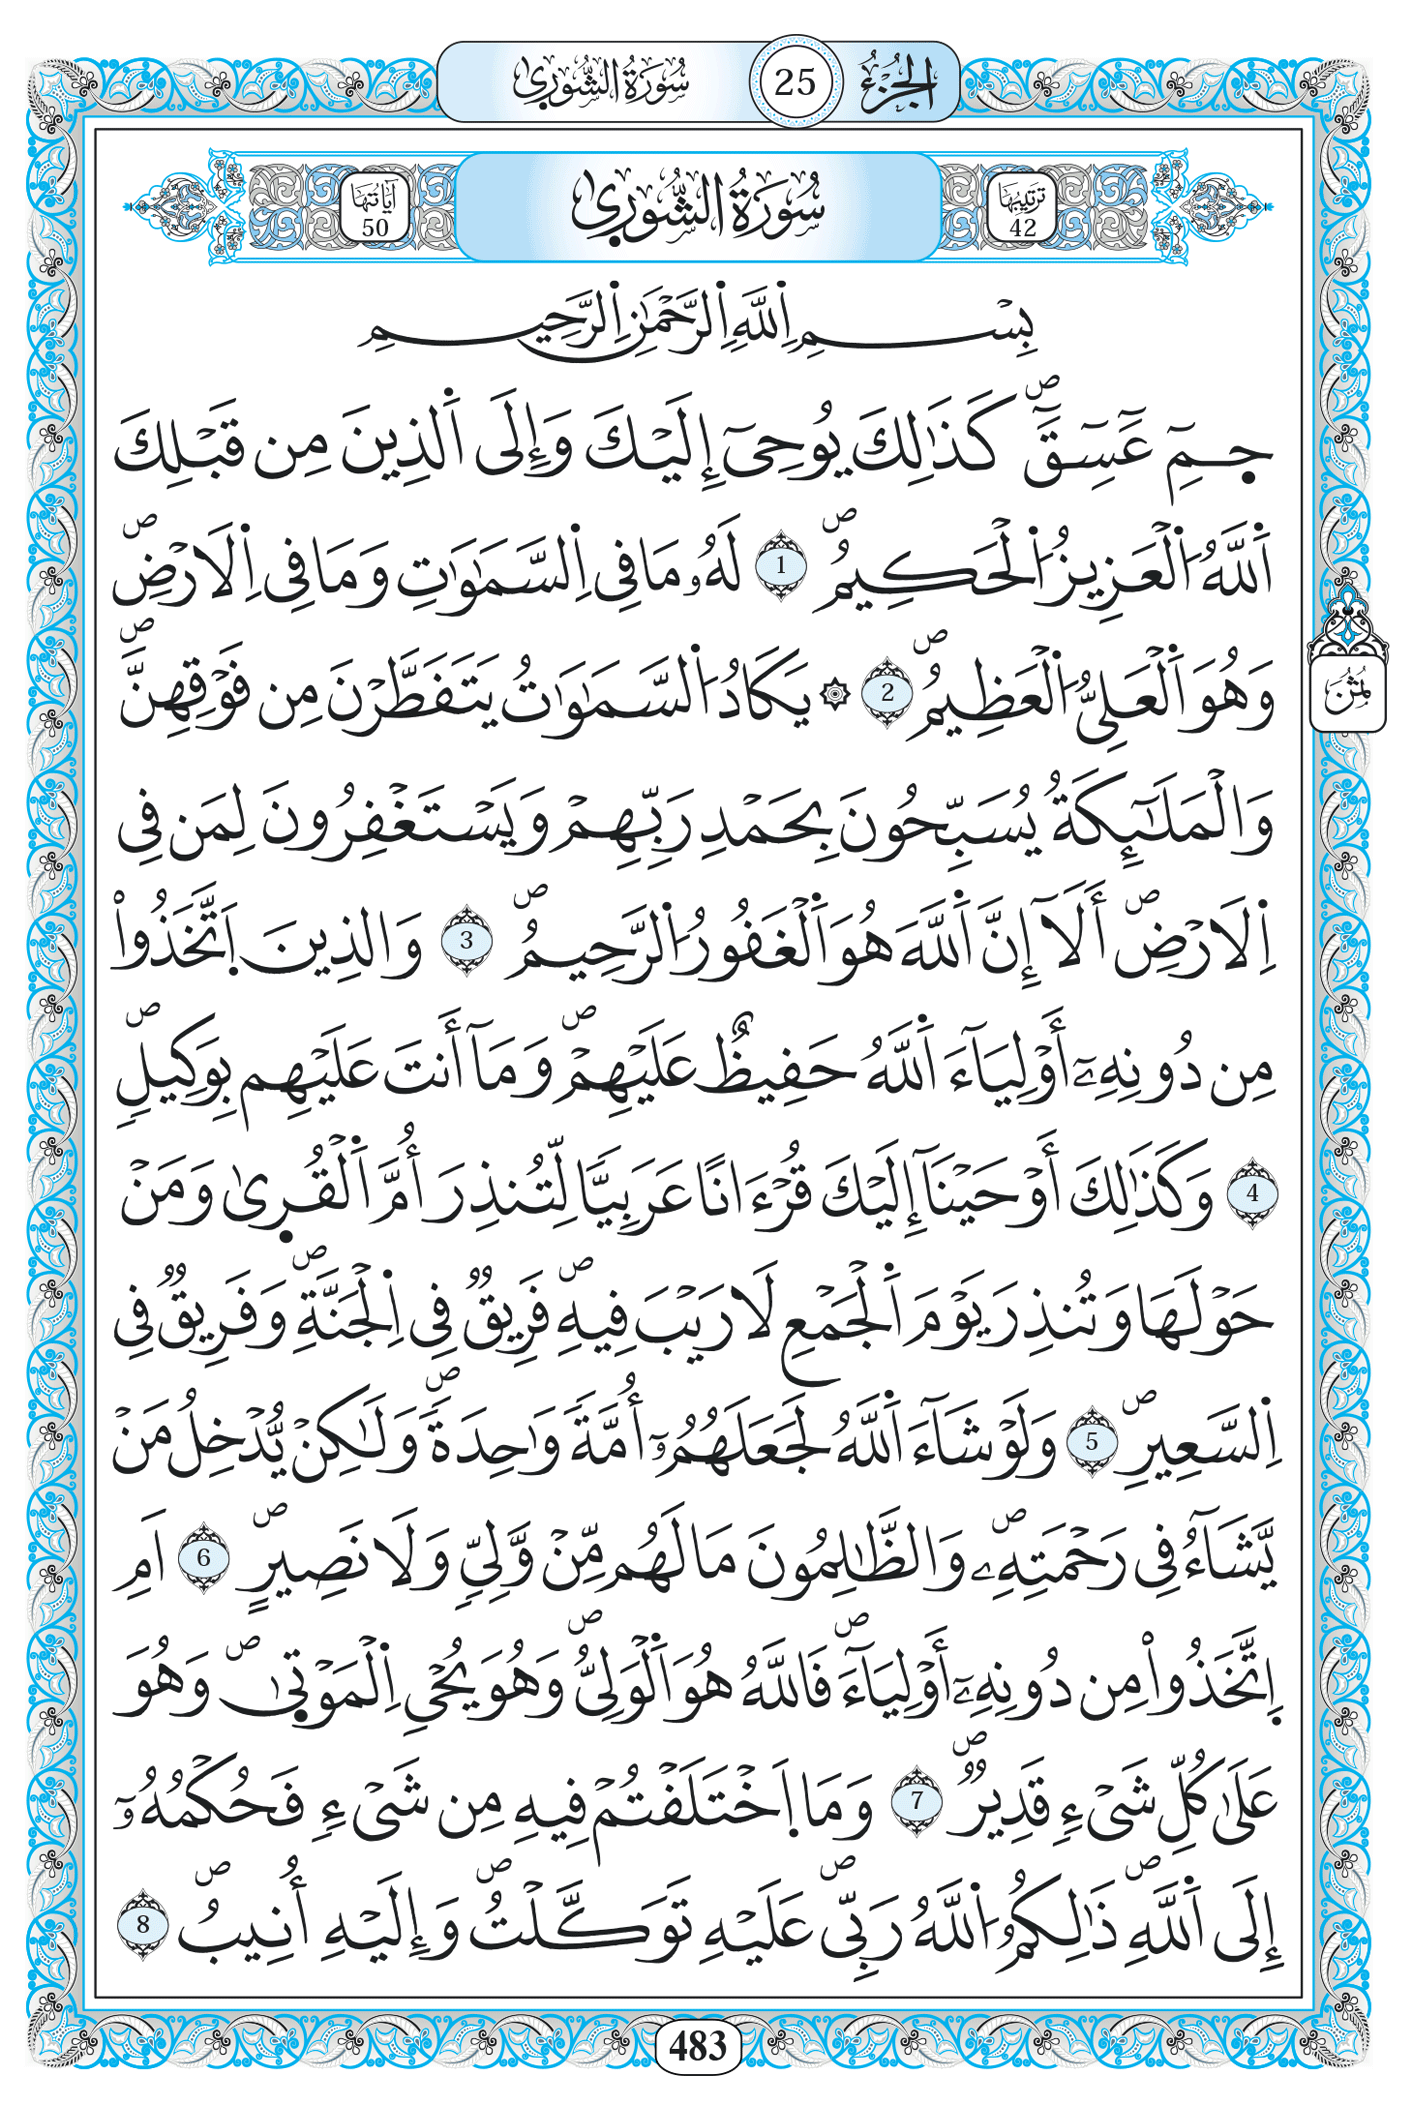 الجزء 25 سورة الشورى
ترتيبها 42 سُورَةُ الشُّورَى آياتها 50
بِسْمِ اِ۬للَّهِ اِ۬لرَّحْمَٰنِ اِ۬لرَّحِيمِ
جمِٓ عَٓسِٓقَٓۖ كَذَٰلِكَ يُوحِيٓ إِلَيْكَ وَإِلَى اَ۬لذِينَ مِن قَبْلِكَ
اَ۬للَّهُ اُ۬لْعَزِيزُ اُ۬لْحَكِيمُۖ 1 لَهُۥ مَا فِي اِ۬لسَّمَٰوَٰتِ وَمَا فِي اِ۬لَارْضِۖ
وَهُوَ اَ۬لْعَلِيُّ اُ۬لْعَظِيمُۖ 2 ۞ يَكَادُ اُ۬لسَّمَٰوَٰتُ يَتَفَطَّرْنَ مِن فَوْقِهِنَّۖ
وَالْمَلَٰٓئِكَةُ يُسَبِّحُونَ بِحَمْدِ رَبِّهِمْ وَيَسْتَغْفِرُونَ لِمَن فِي
اِ۬لَارْضِۖ أَلَآ إِنَّ اَ۬للَّهَ هُوَ اَ۬لْغَفُورُ اُ۬لرَّحِيمُۖ 3 وَالذِينَ اَ۪تَّخَذُواْ
مِن دُونِهِۦٓ أَوْلِيَآءَ اَ۬للَّهُ حَفِيظٌ عَلَيْهِمْۖ وَمَآ أَنتَ عَلَيْهِم بِوَكِيلٖۖ
4 وَكَذَٰلِكَ أَوْحَيْنَآ إِلَيْكَ قُرْءَاناً عَرَبِيّاٗ لِّتُنذِرَ أُمَّ اَ۬لْقُر۪ىٰ وَمَنْ
حَوْلَهَا وَتُنذِرَ يَوْمَ اَ۬لْجَمْعِ لَا رَيْبَ فِيهِۖ فَرِيقٞ فِي اِ۬لْجَنَّةِۖ وَفَرِيقٞ فِي
اِ۬لسَّعِيرِۖ 5 وَلَوْ شَآءَ اَ۬للَّهُ لَجَعَلَهُمُۥٓ أُمَّةٗ وَٰحِدَةٗۖ وَلَٰكِنْ يُّدْخِلُ مَنْ
يَّشَآءُ فِي رَحْمَتِهِۦۖ وَالظَّٰلِمُونَ مَا لَهُم مِّنْ وَّلِيّٖ وَلَا نَصِيرٍۖ 6 اَمِ
اِ۪تَّخَذُواْ مِن دُونِهِۦٓ أَوْلِيَآءَۖ فَاللَّهُ هُوَ اَ۬لْوَلِيُّۖ وَهُوَ يُحْيِ اِ۬لْمَوْت۪ىٰۖ وَهُوَ
عَلَىٰ كُلِّ شَيْءٖ قَدِيرٞۖ 7 وَمَا اَ۪خْتَلَفْتُمْ فِيهِ مِن شَيْءٖ فَحُكْمُهُۥٓ
إِلَى اَ۬للَّهِۖ ذَٰلِكُمُ اُ۬للَّهُ رَبِّيۖ عَلَيْهِ تَوَكَّلْتُۖ وَإِلَيْهِ أُنِيبُۖ 8
ثُمُن
483